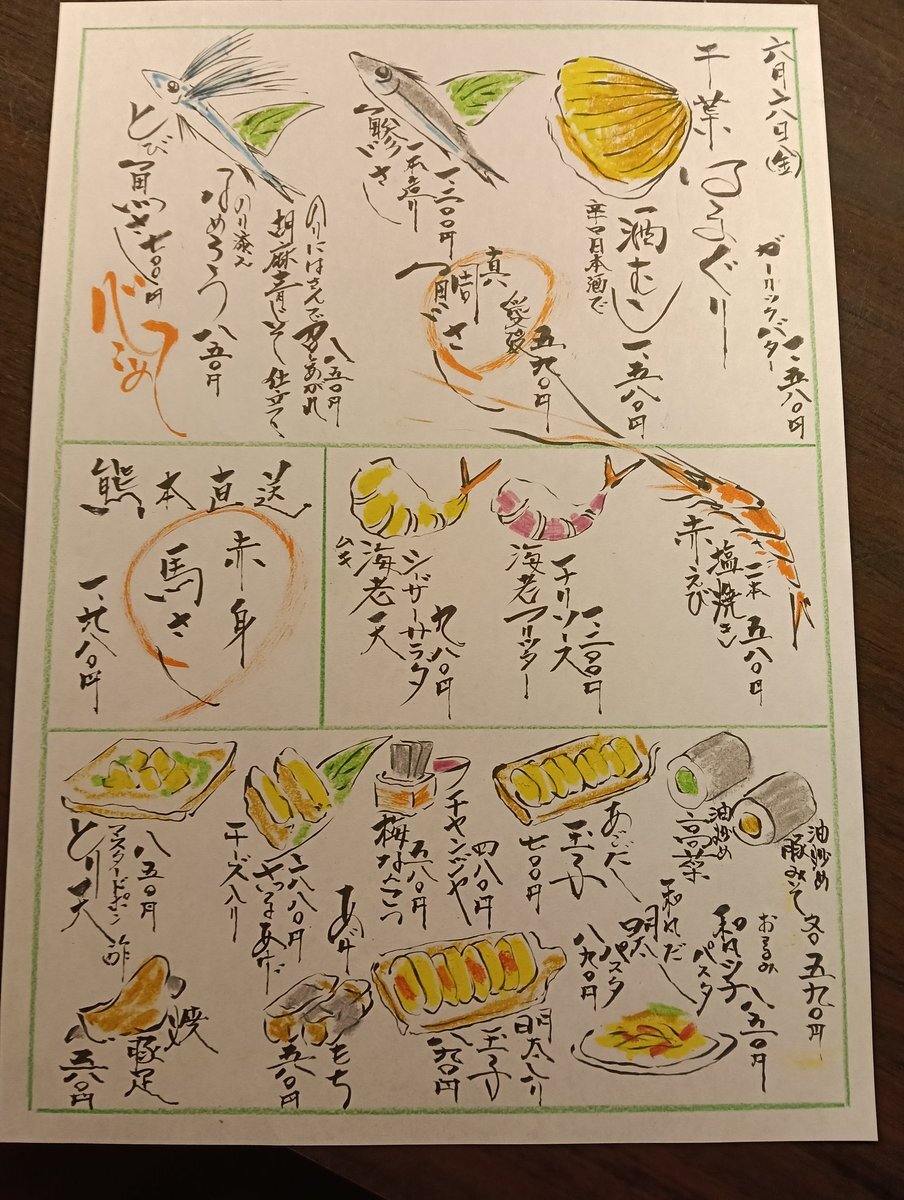 六月六日(金)
千葉はまぐり
ガーリックバター
一、五八〇円
酒むし
一、五八〇円
辛口日本酒で
鯵さし
一本造り
一、二〇〇円
真鯛さし
愛媛
五九〇円
とび魚さし
七〇〇円
なめろう
のり添え
八五〇円
のりにはさんで召しあがれ
胡麻青じそ仕立て
八五〇円
熊本直送
赤身
馬さし
一、六八〇円
赤えび
塩焼き
二本
五八〇円
海老フリッター
チリソース
一、二〇〇円
ムキ海老天
シーザーサラダ
九八〇円
油炒め
豚みそ
油炒め
高菜
各五九〇円
あごだし
玉子
七〇〇円
チャンジャ
四八〇円
梅なんこつ
五八〇円
さつまあげ
チーズ入り
六八〇円
とり天
マスタードポン酢
八五〇円
和風
パスタ
八五〇円
和風だし
明太
パスタ
八九〇円
明太入り
玉子
八九〇円
あげもち
五八〇円
焼豚足
五八〇円